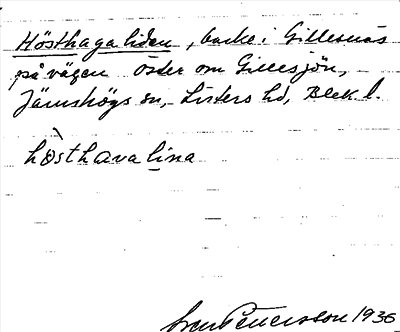 Hösthagaliden, backe i Gillesnäs
på vägen öster om Gillesjön,
Jämshögs sn, Listers hd, Blek l.
hòsthavalina
Sven Pettersson 1935